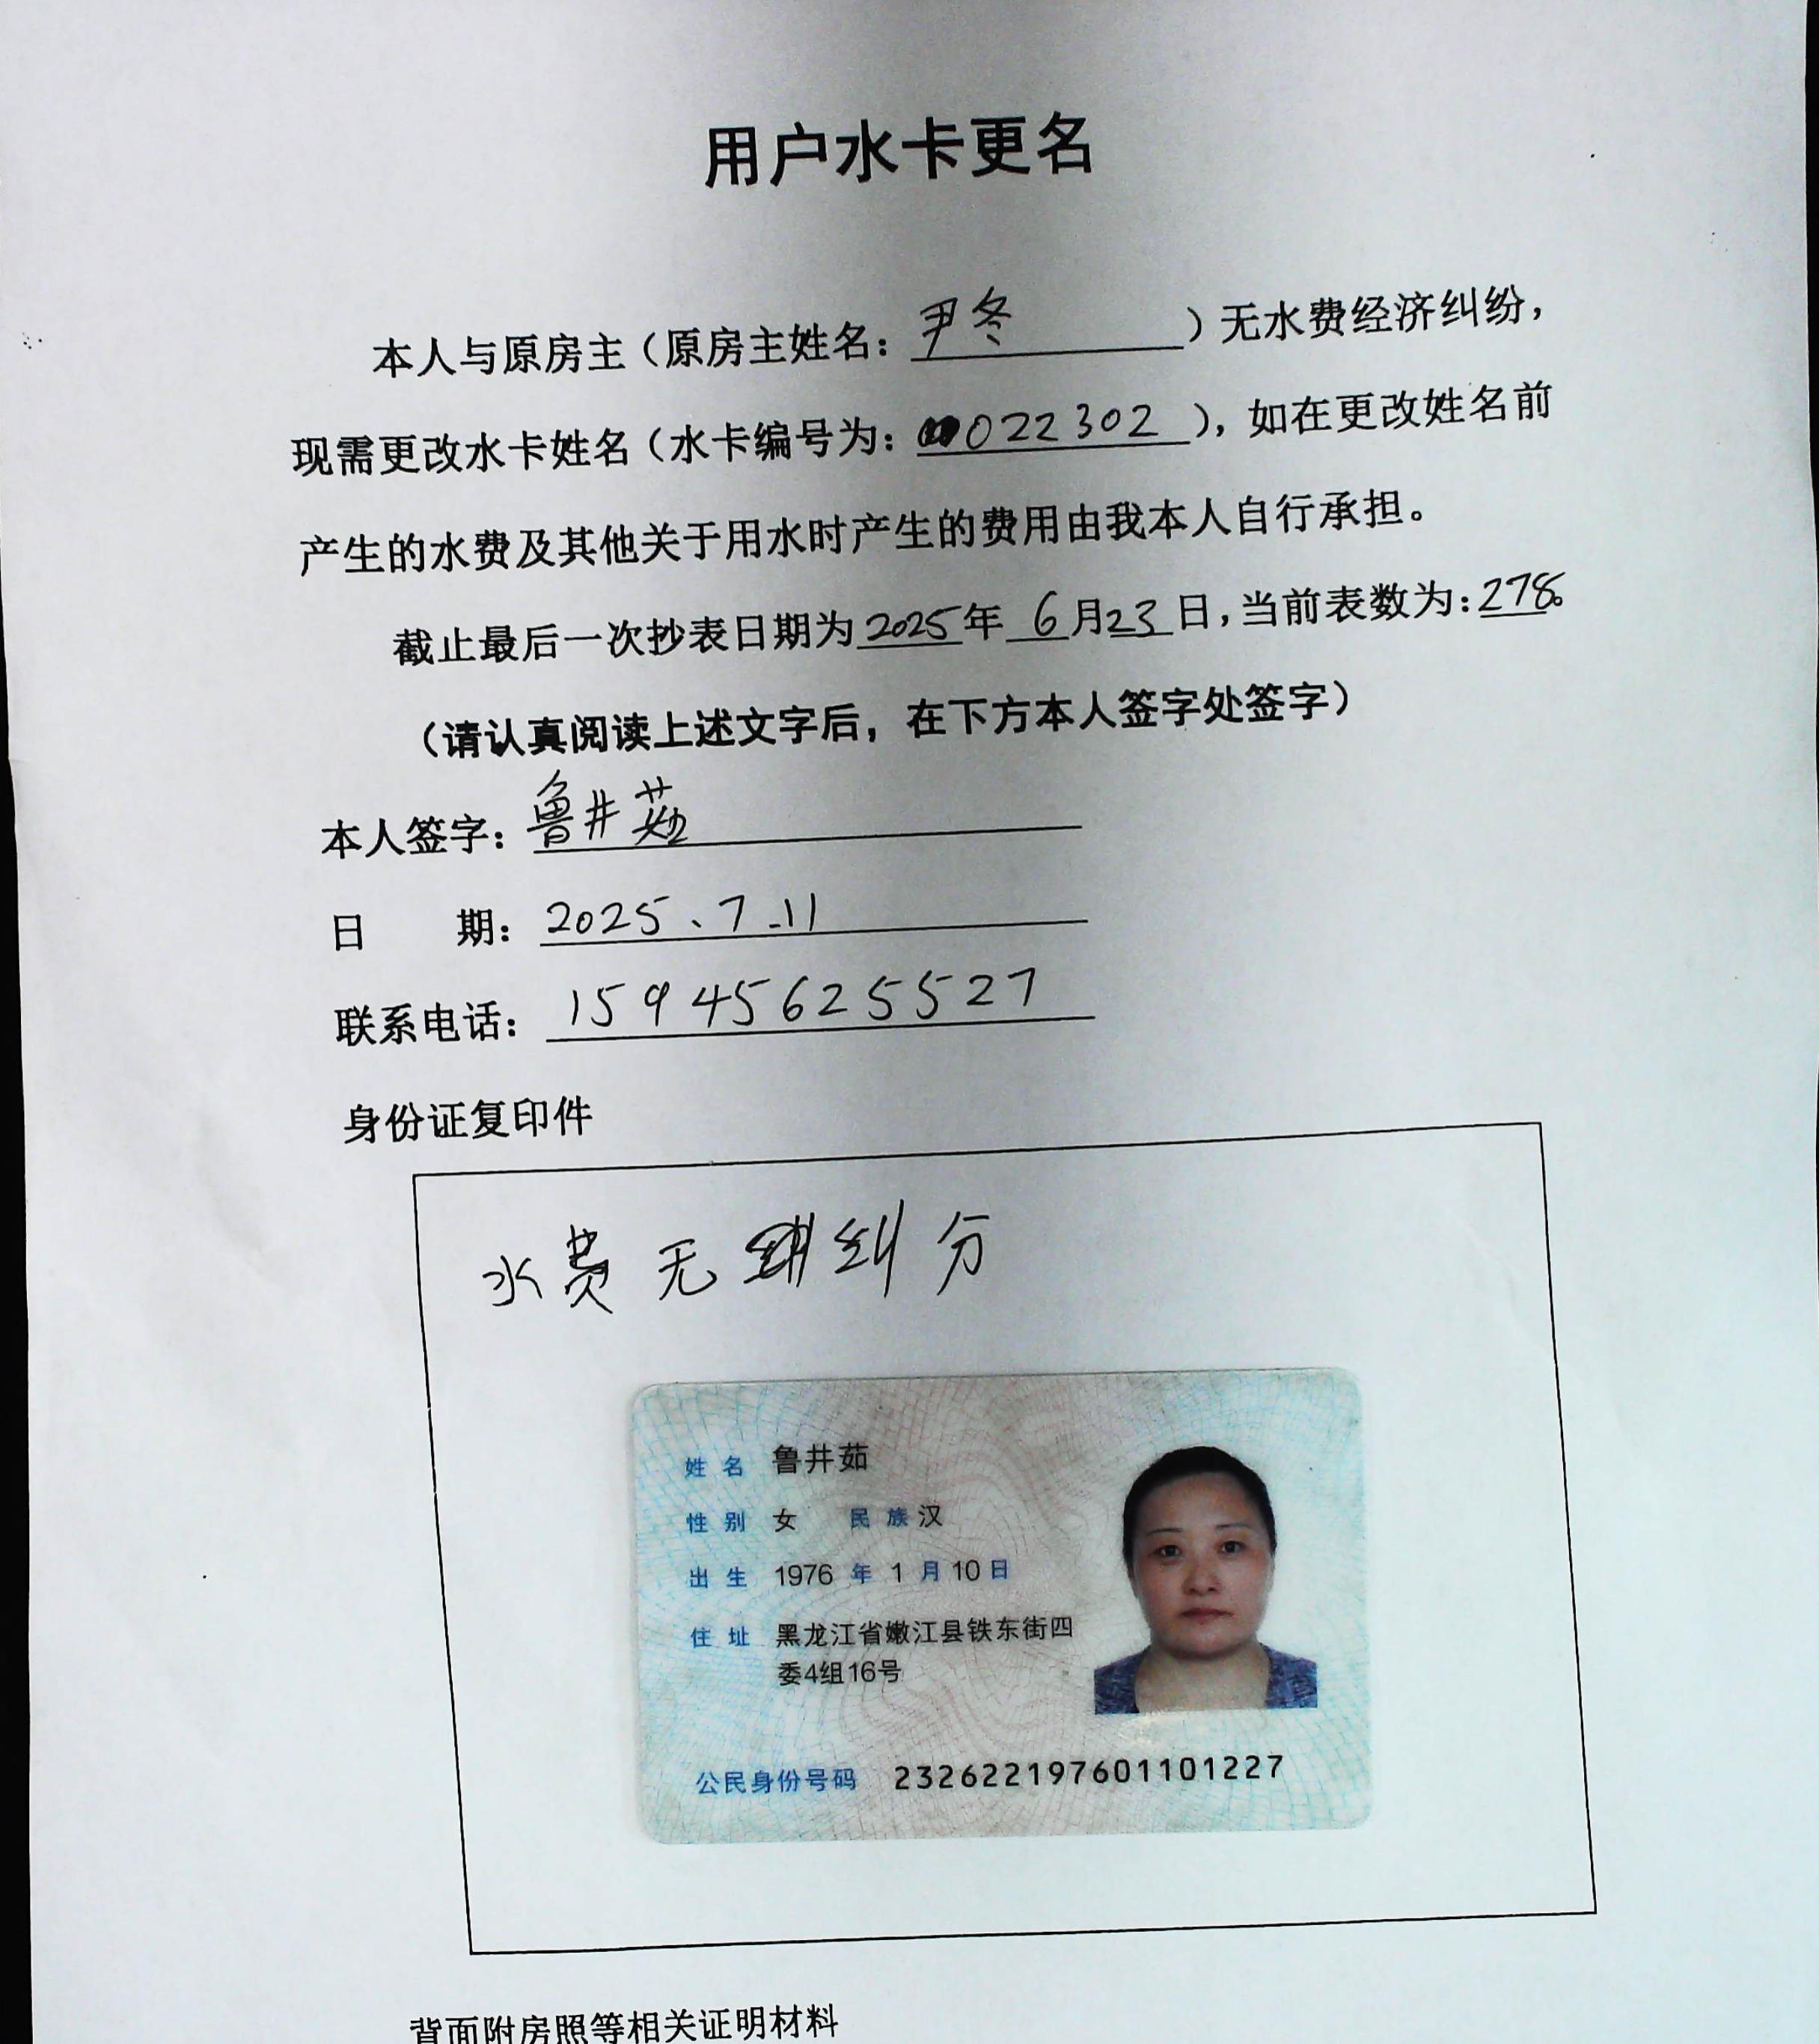 用户水卡更名
本人与原房主（原房主姓名：尹冬）无水费经济纠纷，
现需更改水卡姓名（水卡编号为：022302），如在更改姓名前
产生的水费及其他关于用水时产生的费用由我本人自行承担。
截止最后一次抄表日期为2025年6月23日，当前表数为：278。
（请认真阅读上述文字后，在下方本人签字处签字）
本人签字：鲁井茹
日期：2025、7.11
联系电话：15945625527
身份证复印件
水费无纠分
姓名 鲁井茹
性别 女 民族 汉
出生 1976 年 1 月 10 日
住址 黑龙江省嫩江县铁东街四
委4组16号
公民身份号码 232622197601101227
背面附房照等相关证明材料